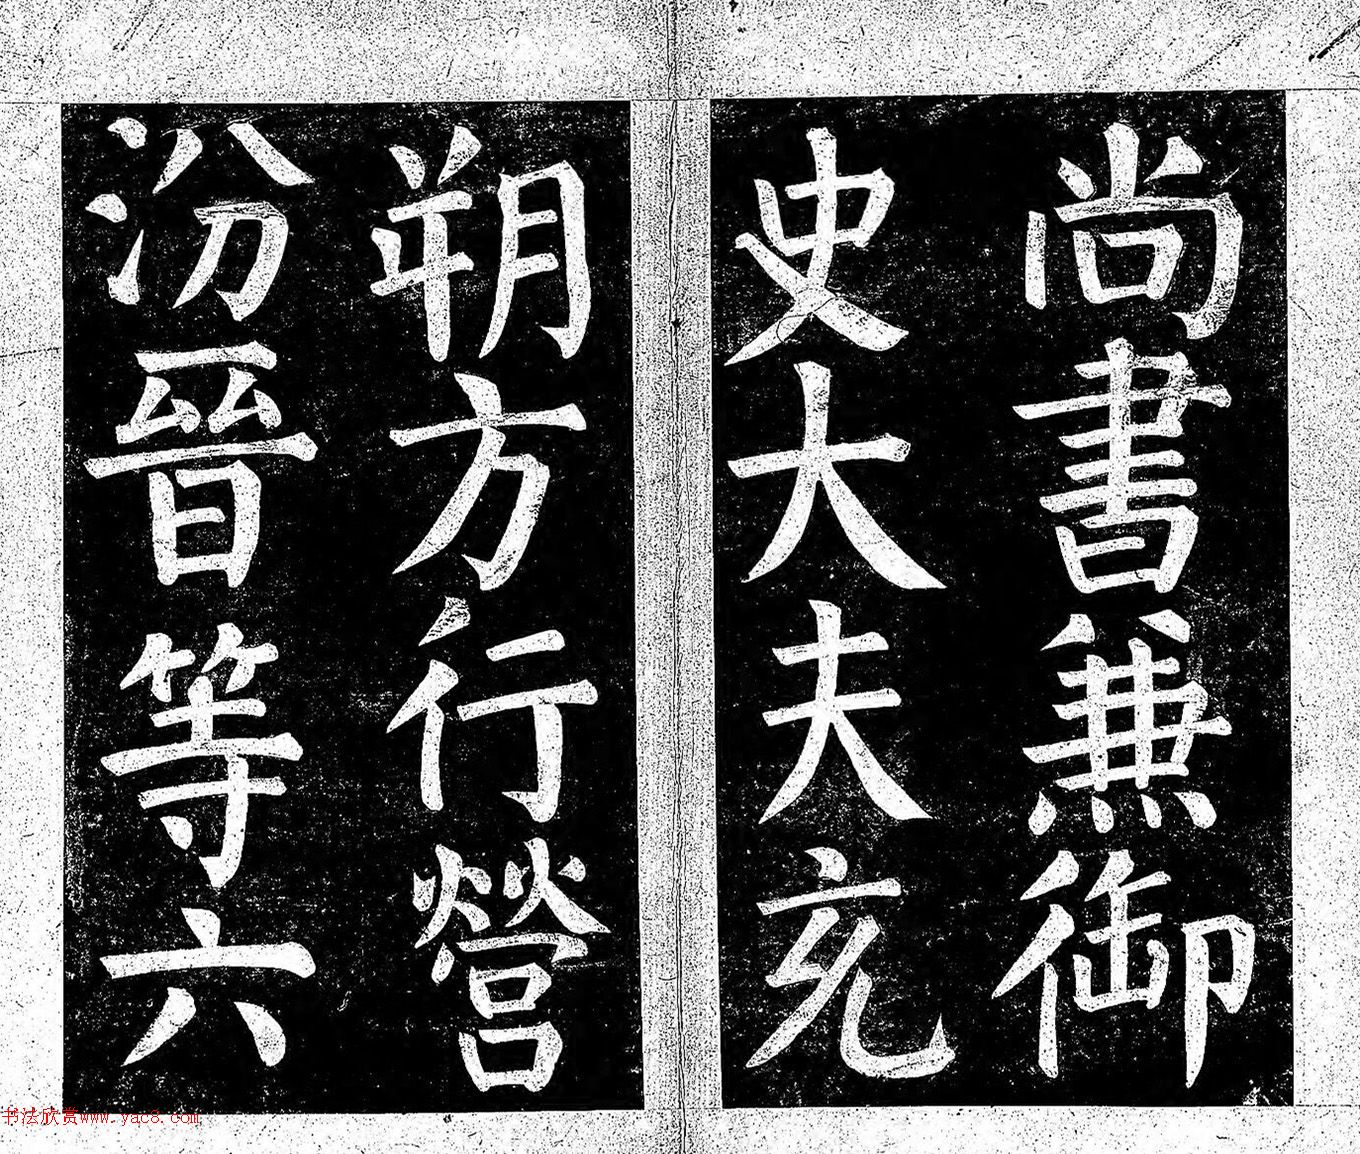 尚書兼御
史大夫充
朔方行營
汾晉等六
书法欣赏www.yac8.com